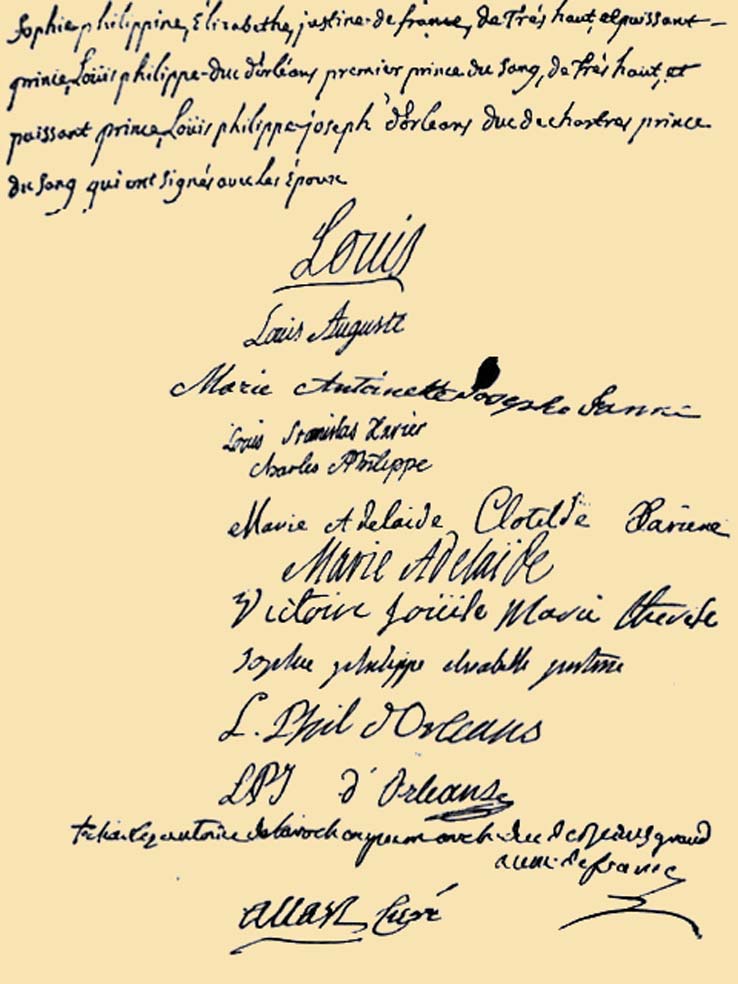 Sophie philippine, Élizabethe, justine de france, de Trés haut, et puissant
prince, Loüis philippe duc d'orléans premier prince du Sang, de Trés haut, et
puissant prince, Loüis philippe joseph d'orleans duc de chartres prince
du Sang qui ont Signés avec les Époux
Louis
Louis Auguste
Marie Antoinette Josepha Jeanne
Louis Stanislas Xavier
Charles Philippe
Marie Adelaide Clotilde Xaviere
Marie Adelaïde
Victoire Loüise Marie Therese
Sophie philippe elisabethe justine
L. Phil d'Orleans
LPJ d'Orleans
grand
aum. de france
allart Curé